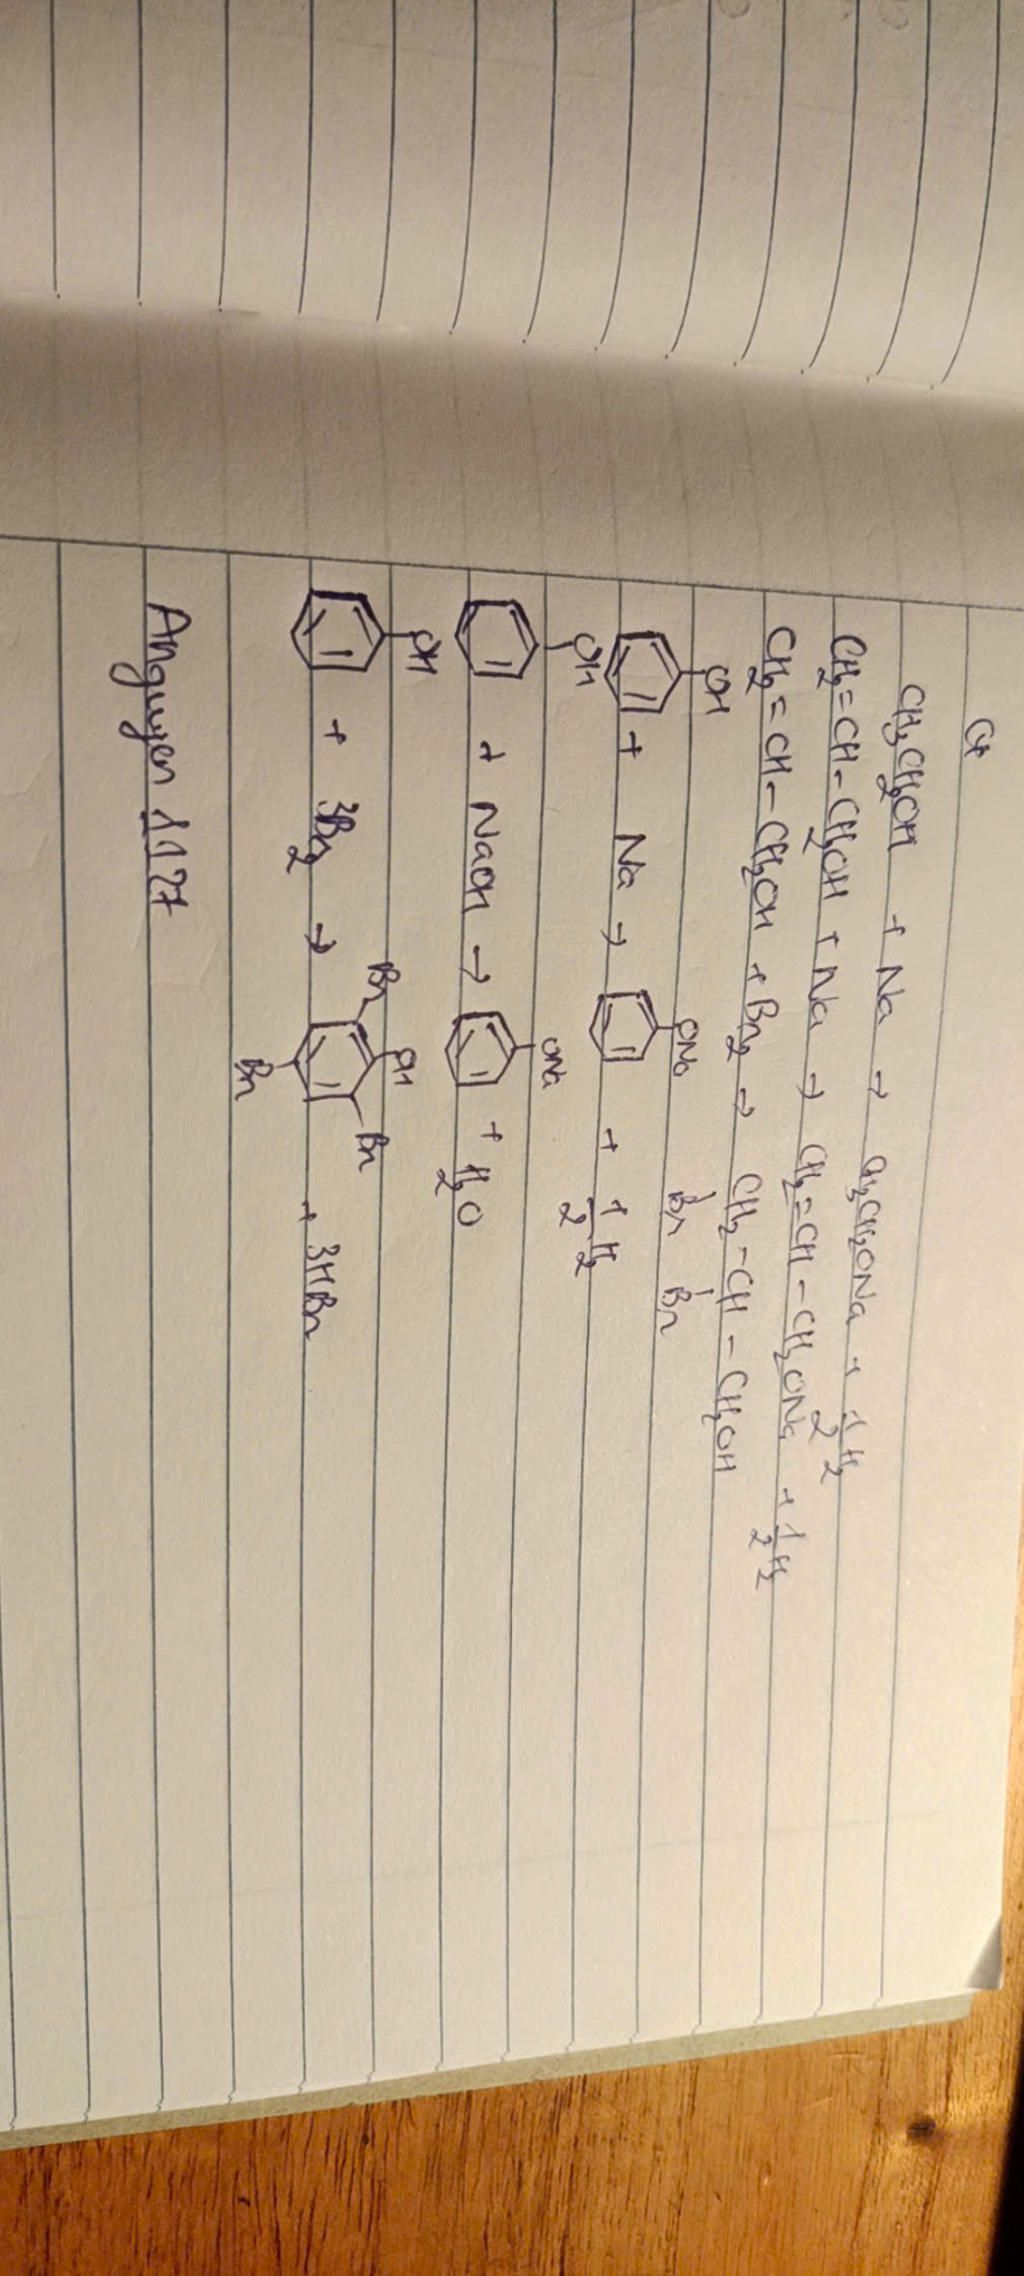 CH₃CH₂OH + Na → CH₃CH₂ONa + 1/2 H₂
CH₂=CH-CH₂OH + Na → CH₂=CH-CH₂ONa + 1/2 H₂
CH₂=CH-CH₂OH + Br₂ → CH₂-CH-CH₂OH
Br Br
OH + Na → ONa + 1/2 H₂
OH + NaOH → ONa + H₂O
OH + 3Br₂ → Br OH Br Br + 3HBr
Anguyen 1127